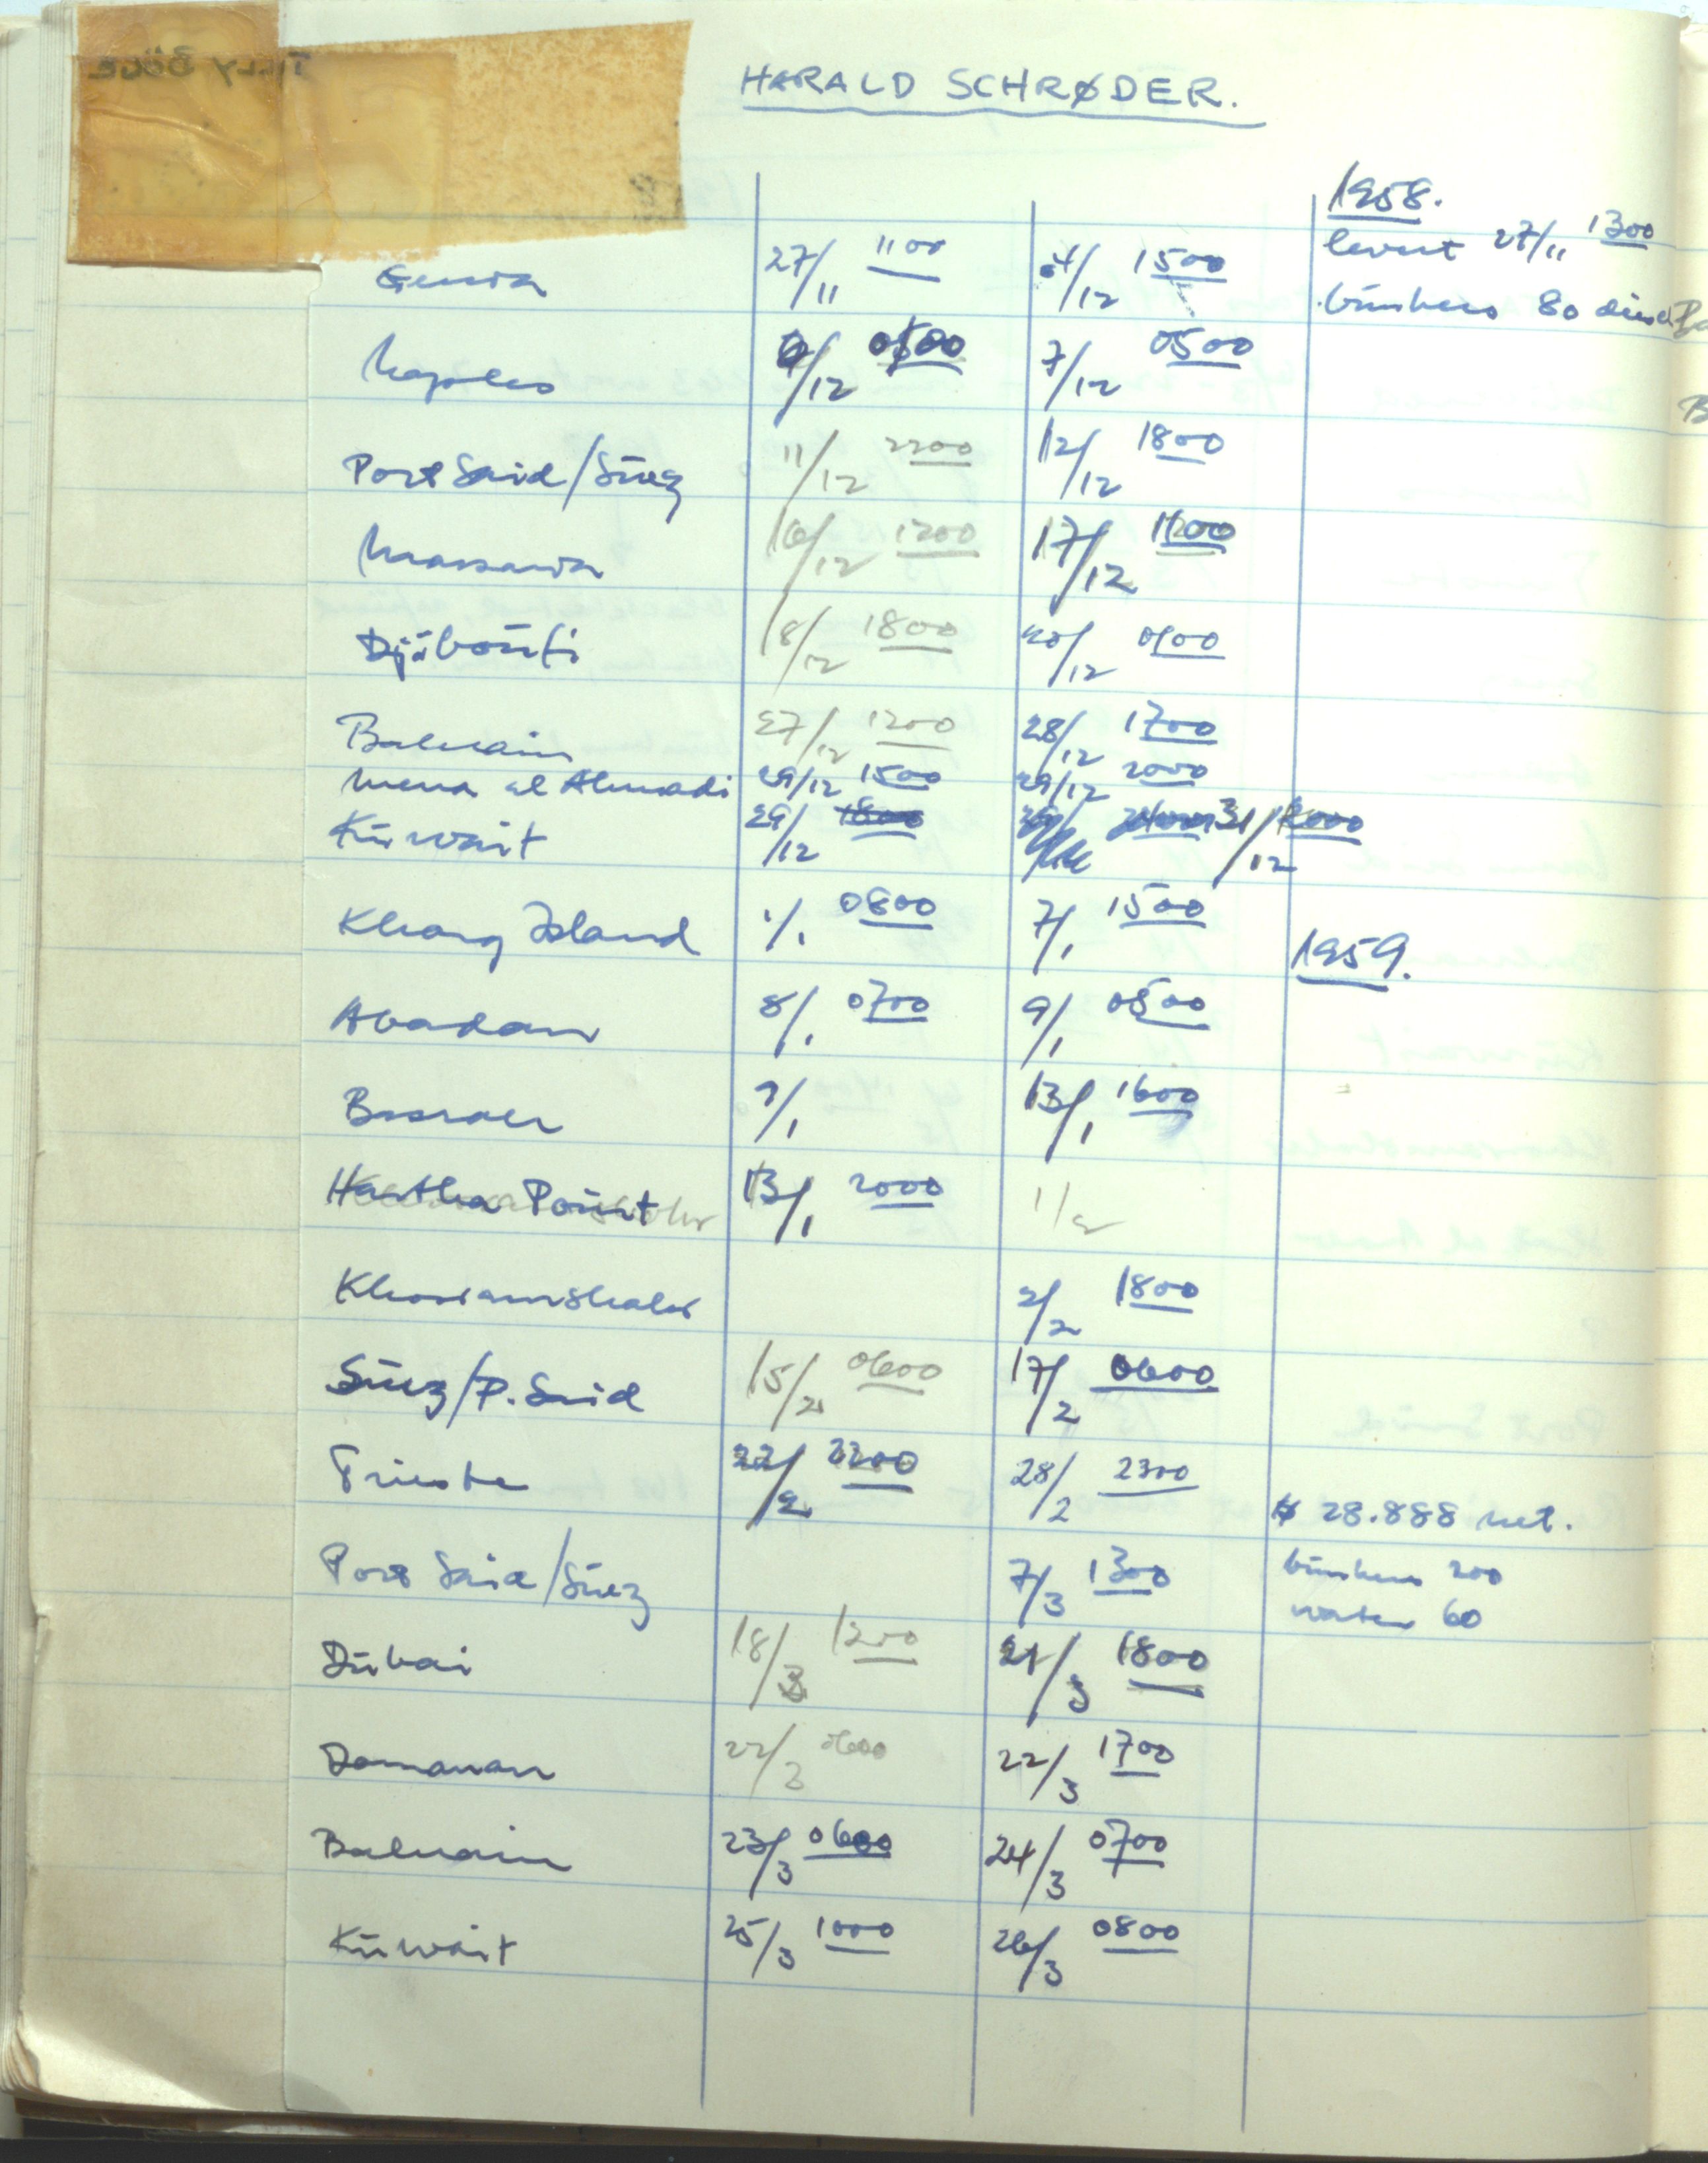 HARALD SCHRØDER.
1958.
Genoa 27/11 1100 4/12 1500 levert 27/11 1300
bünkers 80 diesel
Naples 6/12 7/12 0500
Port Said/Süez 11/12 2200 12/12 1800
Massawa 16/12 1200 17/12
Djiboüti 18/12 1800 20/12
Bahrain 27/12 1200 28/12 1700
Mena al Ahmadi 29/12 1500 29/12 2000
Küwait 29/12 1800 31/12
Kharg Island 1/1 0800 7/1 1500
1959.
Abadan 8/1 0700 9/1 0500
Basrah 9/1 13/1 1600
Hartha Point 13/1 2000 1/2
Khorramshahr 2/2 1800
Süez/P. Said 15/2 0600 17/2 0600
Trieste 22/2 2200 28/2 2300
$ 28.888 net.
Port Said/Süez 7/3 1300 bünkers 200
water 60
Dübai 18/3 1200 21/3 1800
Dammam 22/3 0600 22/3 1700
Bahrain 23/3 0600 24/3 0700
Küwait 25/3 1000 26/3 0800